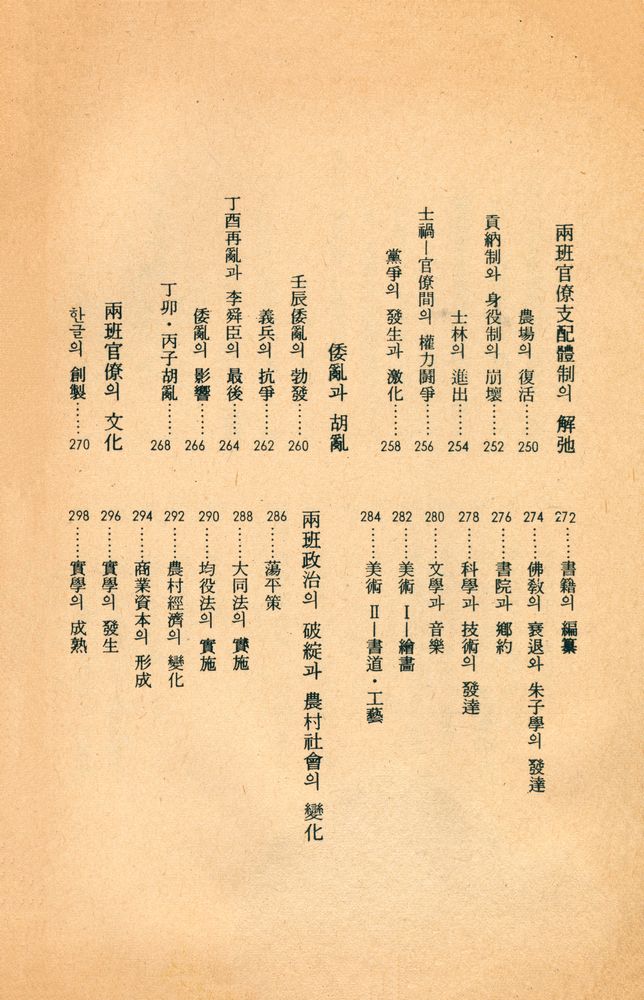 兩班官僚支配體制의 解弛
農場의 復活……250
貢納制와 身役制의 崩壞……252
士林의 進出……254
士禍—官僚間의 權力鬪爭……256
黨爭의 發生과 激化……258
倭亂과 胡亂
壬辰倭亂의 勃發……260
義兵의 抗爭……262
丁酉再亂과 李舜臣의 最後……264
倭亂의 影響……266
丁卯·丙子胡亂……268
兩班官僚의 文化
한글의 創製……270
272……書籍의 編纂
274……佛敎의 衰退와 朱子學의 發達
276……書院과 鄕約
278……科學과 技術의 發達
280……文學과 音樂
282……美術 Ⅰ—繪畵
284……美術 Ⅱ—書道·工藝
兩班政治의 破綻과 農村社會의 變化
286……蕩平策
288……大同法의 實施
290……均役法의 實施
292……農村經濟의 變化
294……商業資本의 形成
296……實學의 發生
298……實學의 成熟